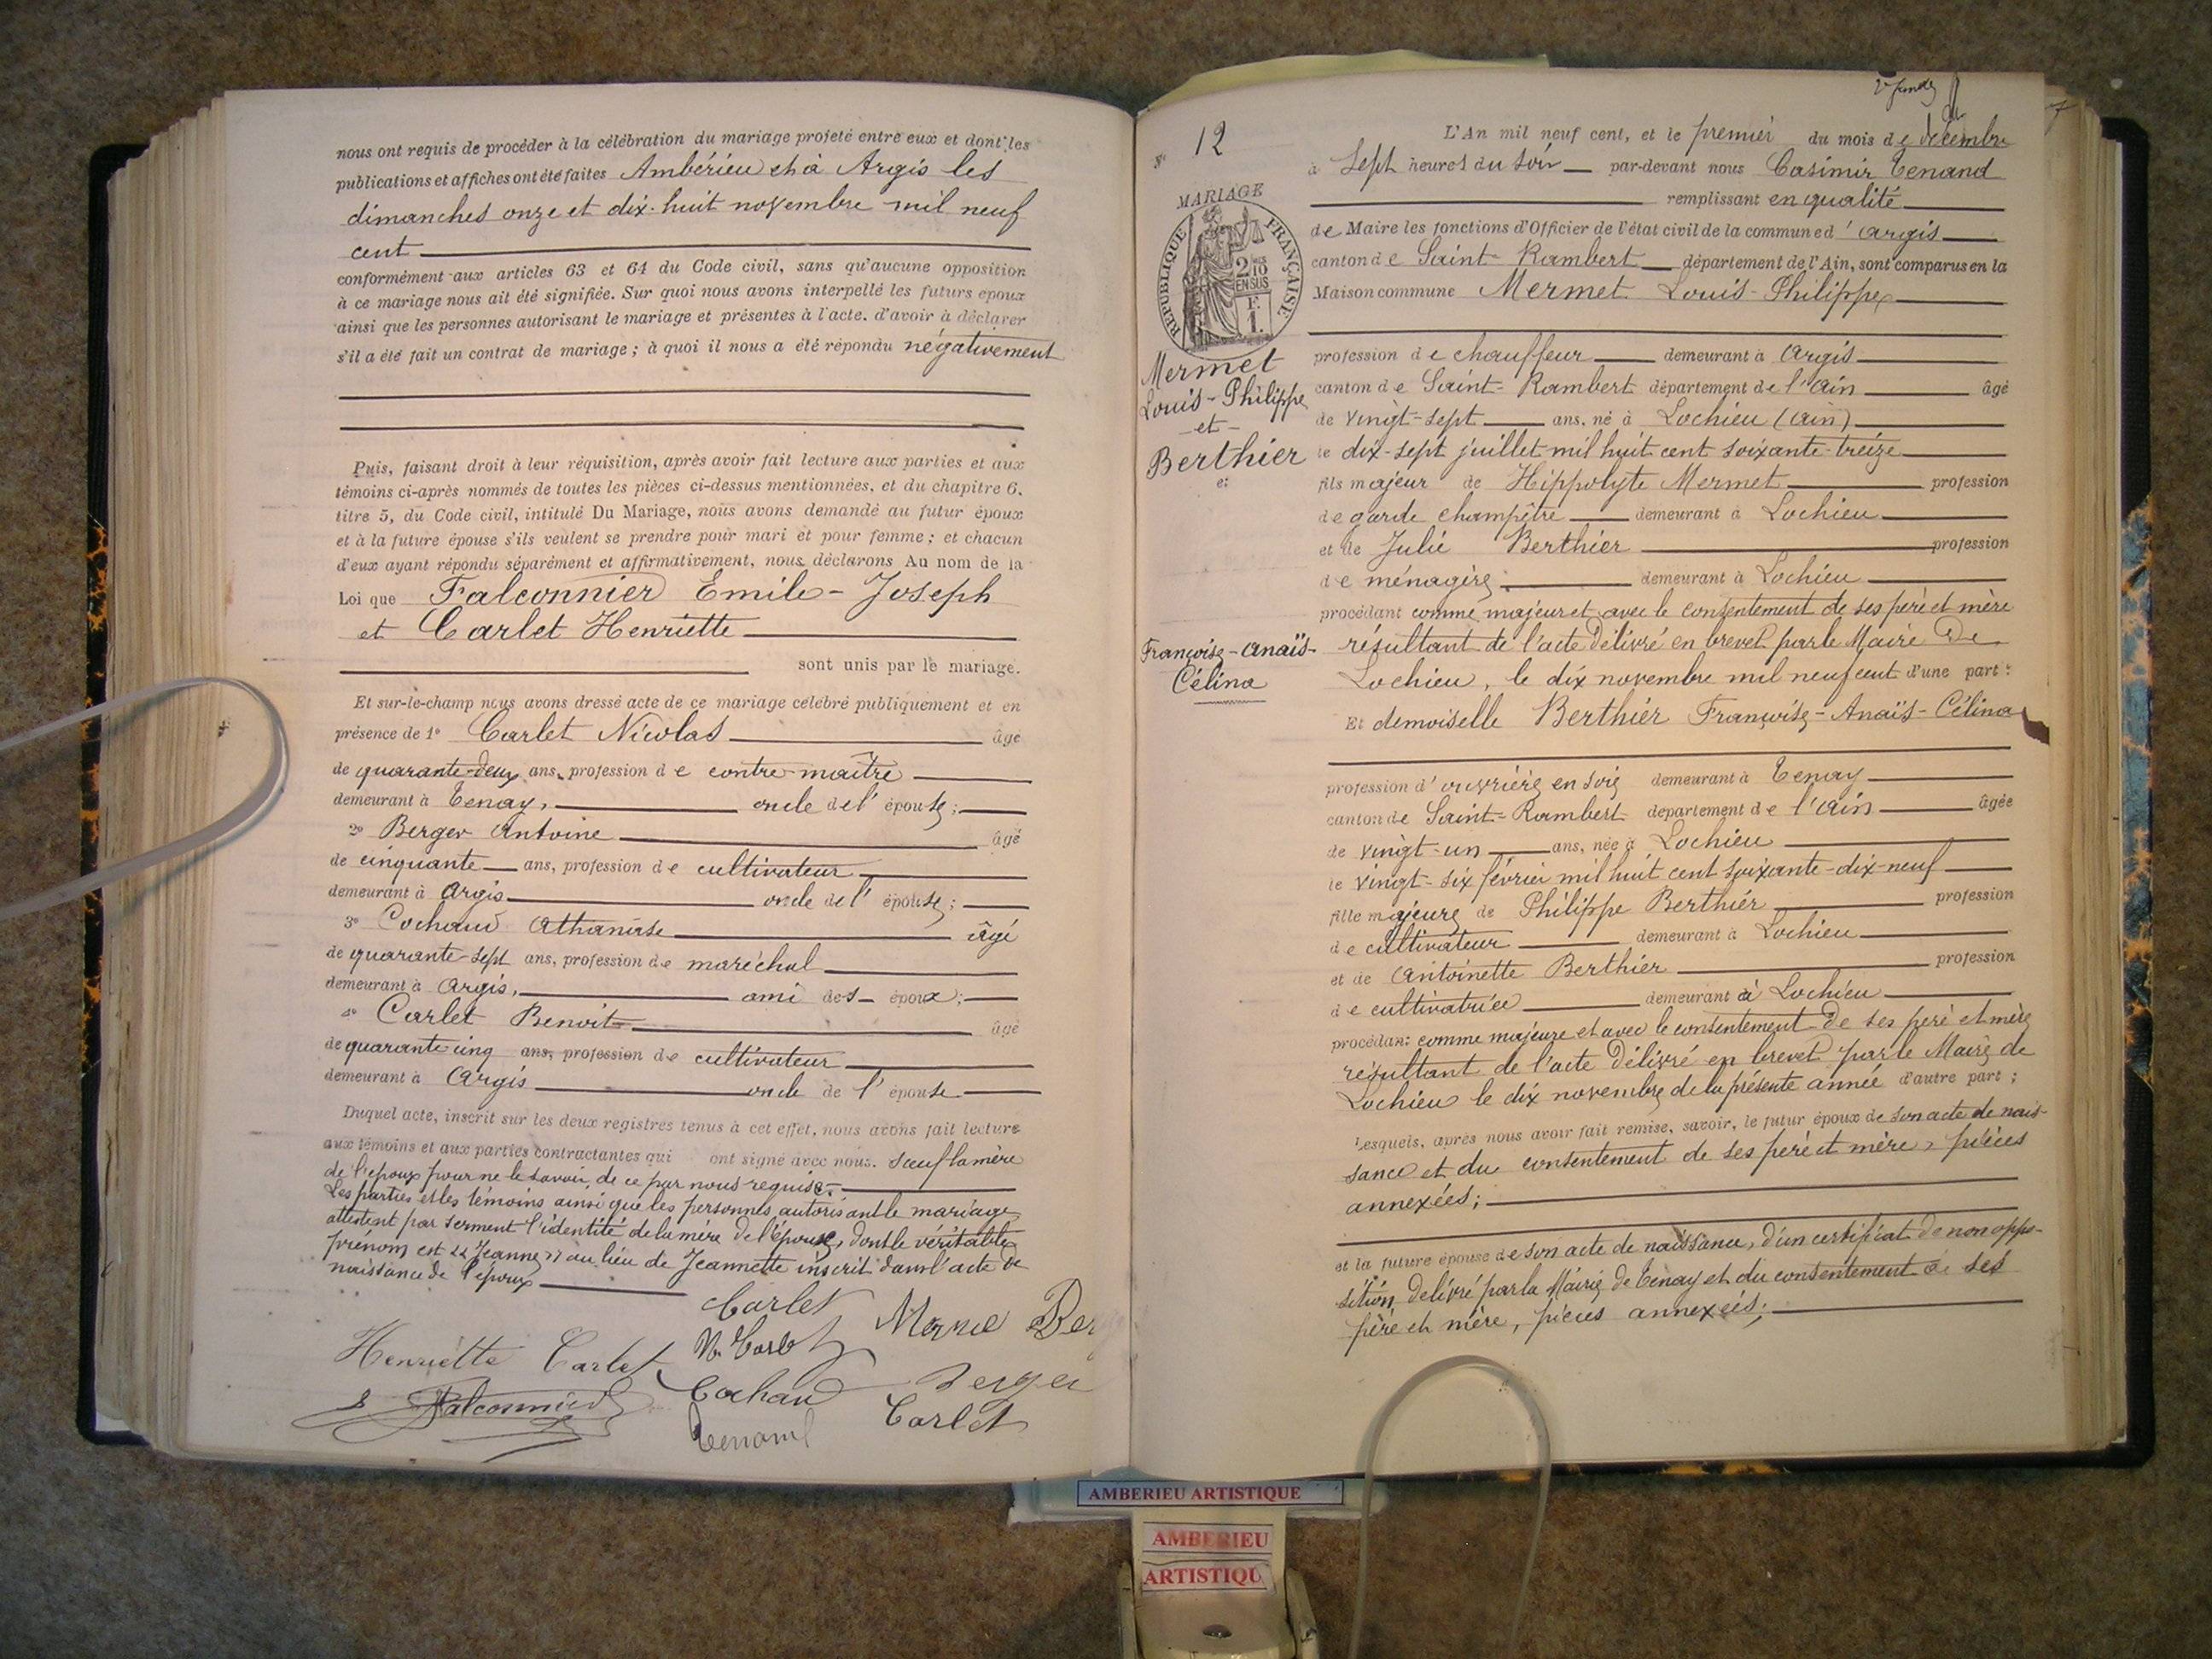 nous ont requis de procéder à la célébration du mariage projeté entre eux et dont les
publications et affiches ont été faites Ambérieu et à Argis les
dimanches onze et dix-huit novembre mil neuf
cent
conformément aux articles 63 et 64 du Code civil, sans qu'aucune opposition
à ce mariage nous ait été signifiée. Sur quoi nous avons interpellé les futurs époux
ainsi que les personnes autorisant le mariage et présentes à l'acte. d'avoir à déclarer
s'il a été fait un contrat de mariage ; à quoi il nous a été répondu négativement
Puis, faisant droit à leur réquisition, après avoir fait lecture aux parties et aux
témoins ci-après nommés de toutes les pièces ci-dessus mentionnées, et du chapitre 6,
titre 5, du Code civil, intitulé Du Mariage, nous avons demandé au futur époux
et à la future épouse s'ils veulent se prendre pour mari et pour femme ; et chacun
d'eux ayant répondu séparément et affirmativement, nous déclarons Au nom de la
Loi que Falconnier Emile-Joseph
et Carlet Henriette
sont unis par le mariage.
Et sur-le-champ nous avons dressé acte de ce mariage célébré publiquement et en
présence de 1° Carlet Nicolas âgé
de quarante-deux ans, profession de contre-maître
demeurant à Tenay, oncle de l'épouse ;
2° Berger Antoine âgé
de cinquante ans, profession de cultivateur
demeurant à Argis oncle de l'épouse ;
3° Cochaud Athanase âgé
de quarante-sept ans, profession de maréchal
demeurant à Argis, ami des époux ;
4° Carlet Benoit âgé
de quarante cinq ans, profession de cultivateur
demeurant à Argis oncle de l'épouse
Duquel acte, inscrit sur les deux registres tenus à cet effet, nous avons fait lecture
aux témoins et aux parties contractantes qui ont signé avec nous. sauf la mère
de l'époux pour ne le savoir, de ce par nous requise.
Les parties et les témoins ainsi que les personnes autorisant le mariage
attestent par serment l'identité de la mère de l'époux, dont le véritable
prénom est "Jeanne" au lieu de Jeannette inscrit dans l'acte de
naissance de l'époux
Carlet
Henriette Carlet N. Carlet
E Falconnier Cochaud Berger
Tenand Carlet
N° 12
L'An mil neuf cent, et le premier du mois de décembre
à Sept heures du soir par-devant nous Casimir Tenand
remplissant en qualité
de Maire les fonctions d'Officier de l'état civil de la commune d'Argis
canton de Saint-Rambert département de l'Ain, sont comparus en la
Maison commune Mermet Louis-Philippe
MARIAGE
RÉPUBLIQUE FRANÇAISE
2/10
EN SUS
F.
1.
Mermet
Louis-Philippe
et
Berthier
et
Françoise-Anaïs-
Célina
profession de chauffeur demeurant à Argis
canton de Saint-Rambert département de l'Ain âgé
de vingt-sept ans, né à Lochieu (Ain)
le dix-sept juillet mil huit cent soixante-treize
fils majeur de Hippolyte Mermet profession
de garde champêtre demeurant à Lochieu
et de Julie Berthier profession
de ménagère demeurant à Lochieu
procédant comme majeur et avec le consentement de ses père et mère
résultant de l'acte délivré en brevet par le Maire de
Lochieu, le dix novembre mil neuf cent d'une part :
Et demoiselle Berthier Françoise-Anaïs-Célina
profession d'ouvrière en soie demeurant à Tenay
canton de Saint-Rambert département de l'Ain âgée
de vingt-un ans, née à Lochieu
le vingt-six février mil huit cent soixante-dix-neuf
fille majeure de Philippe Berthier profession
de cultivateur demeurant à Lochieu
et de Antoinette Berthier profession
de cultivatrice demeurant à Lochieu
procédant comme majeure et avec le consentement de ses père et mère
résultant de l'acte délivré en brevet par le Maire de
Lochieu le dix novembre de la présente année d'autre part ;
Lesquels, après nous avoir fait remise, savoir, le futur époux de son acte de nais-
sance et du consentement de ses père et mère, pièces
annexées ;
et la future épouse de son acte de naissance, d'un certificat de non oppo-
sition délivré par la Mairie de Tenay et du consentement de ses
père et mère, pièces annexées ;
AMBERIEU ARTISTIQUE
AMBERIEU
ARTISTIQU